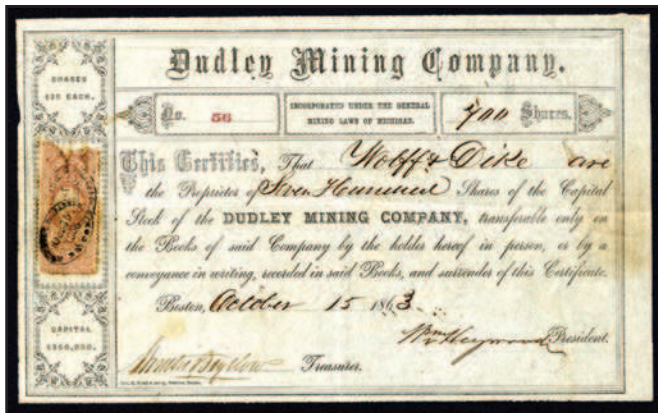 Dudley Mining Company.
SHARES
$25 EACH.
No. 56
INCORPORATED UNDER THE GENERAL
MINING LAWS OF MICHIGAN.
700 Shares.
This Certifies, That Wolff & Dike are
the Proprietor of Seven Hundred Shares of the Capital
Stock of the DUDLEY MINING COMPANY, transferable only on
the Books of said Company by the holder hereof in person, or by a
conveyance in writing, recorded in said Books, and surrender of this Certificate.
Boston, October 15 1863.
CAPITAL
$500,000.
Wm Heywood President.
Bigelow Treasurer.